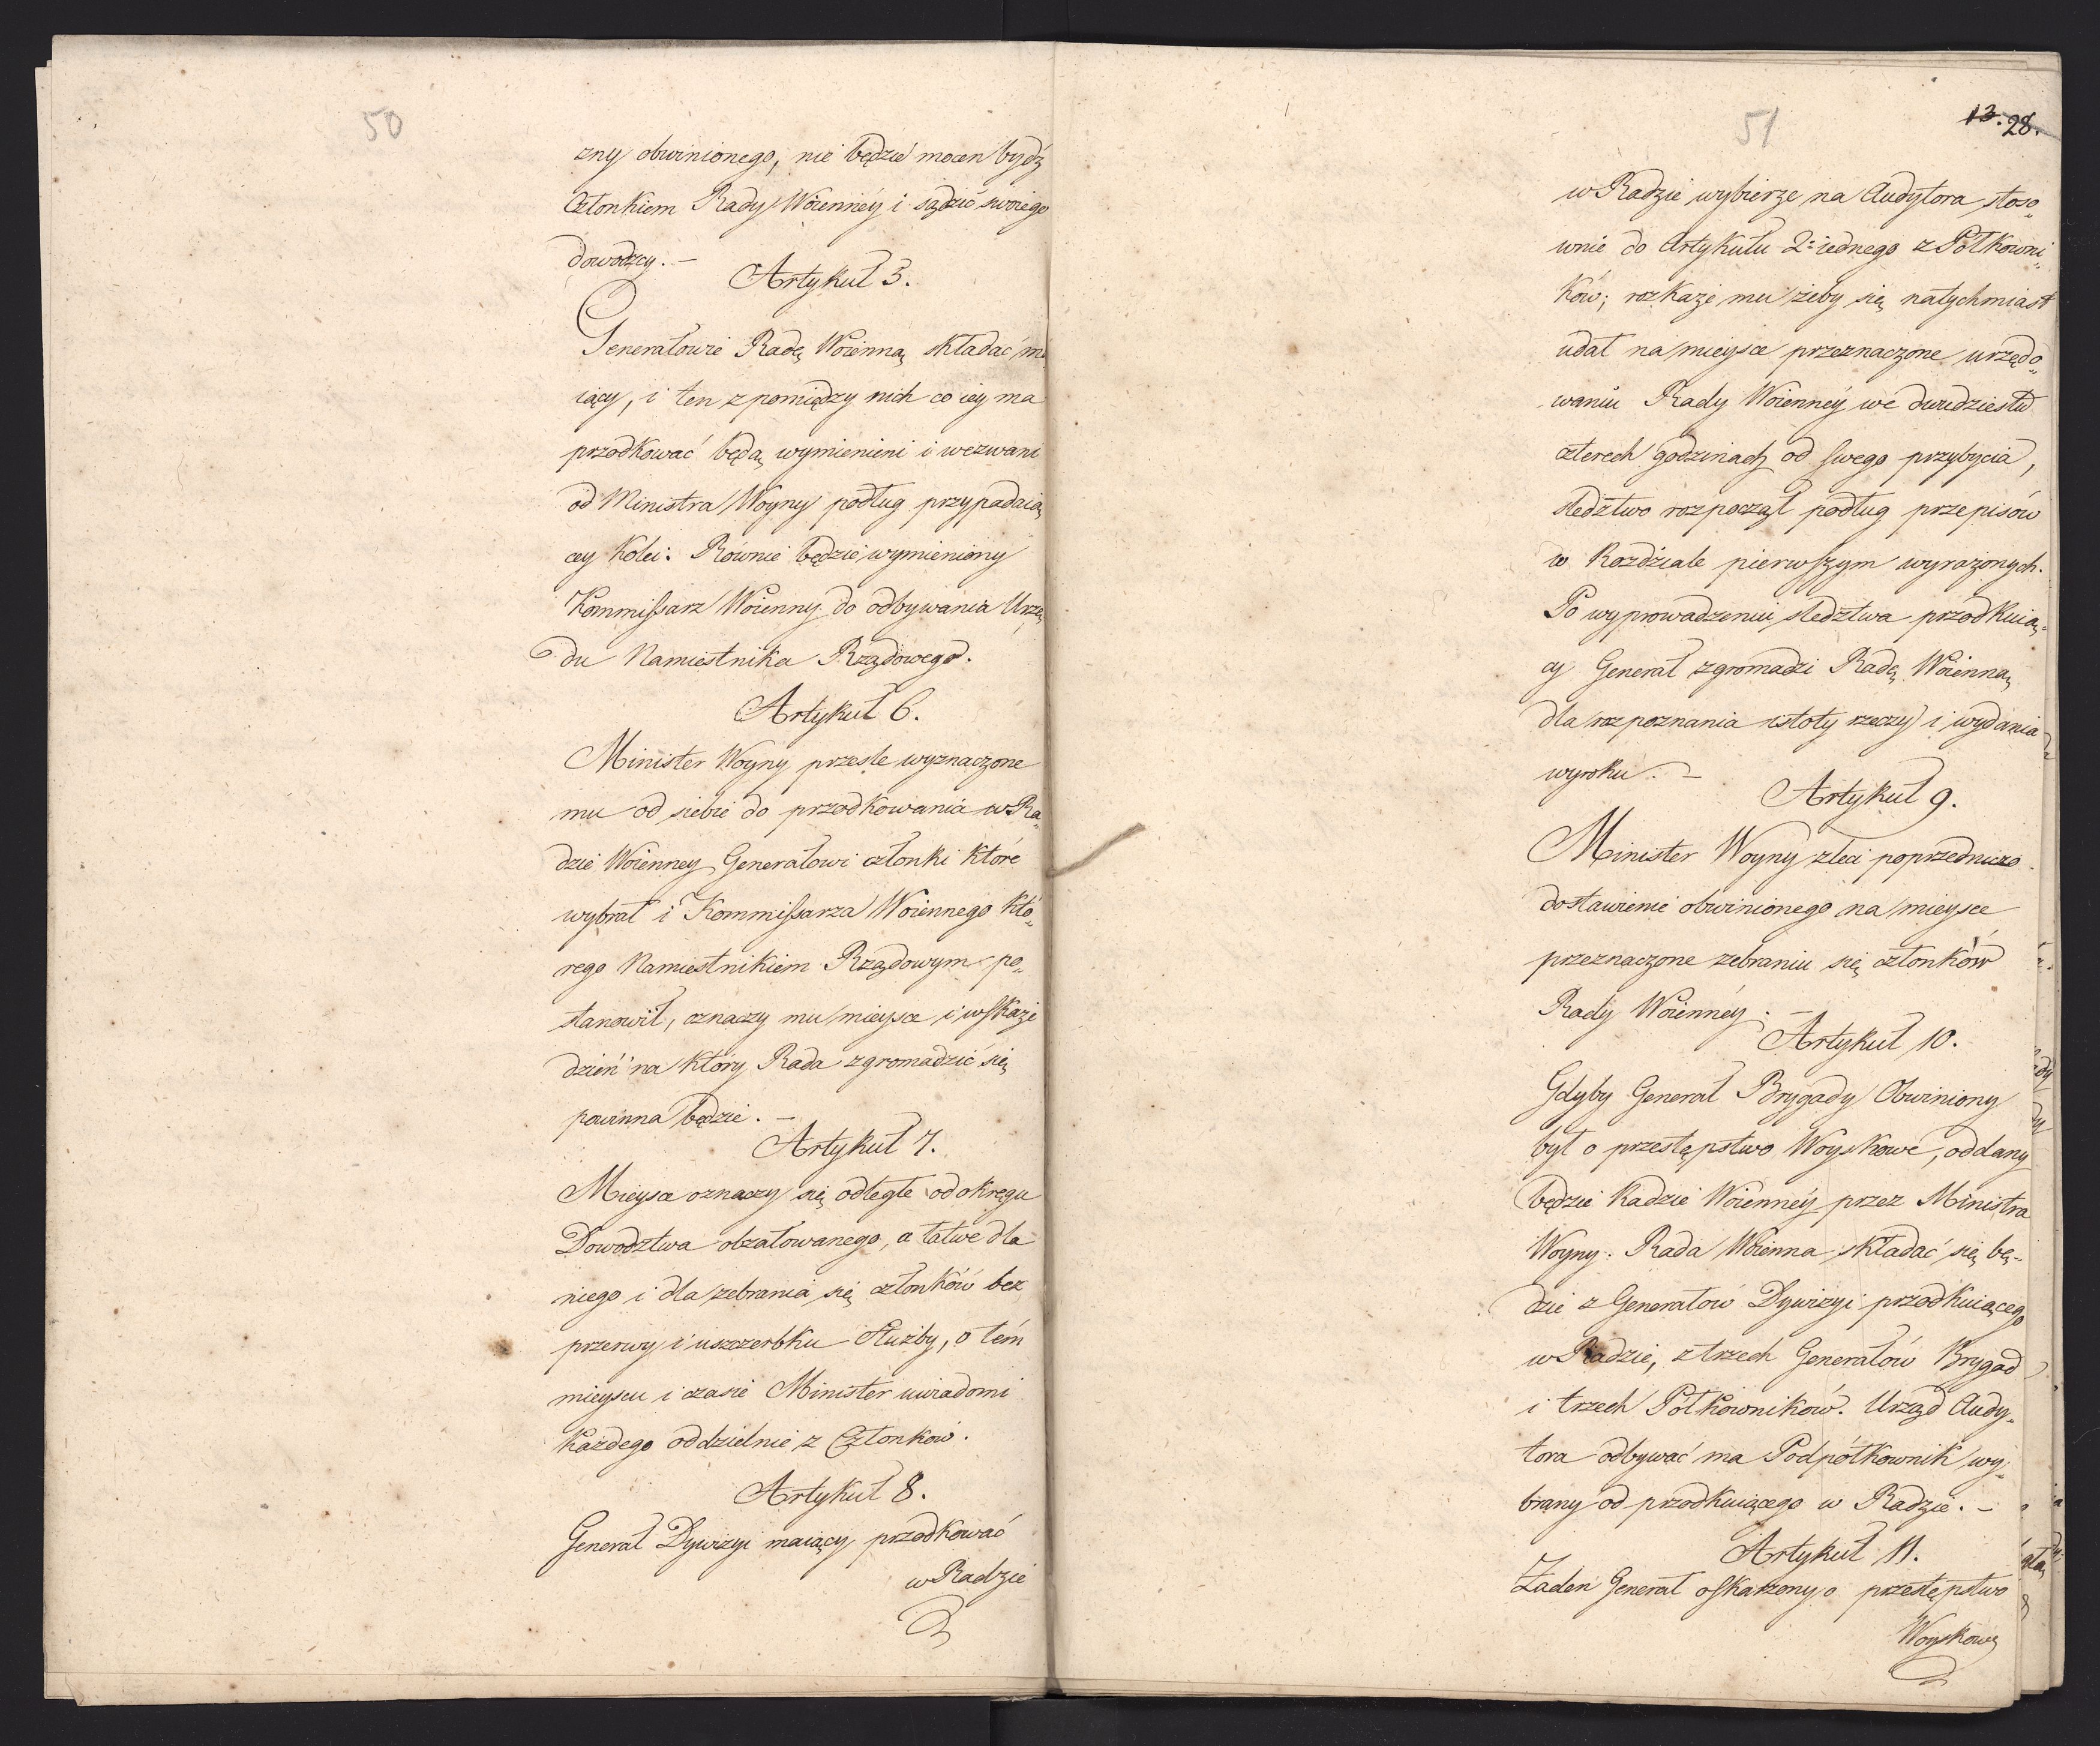 50
zny obwinionego, nie będzie mocen bydź
Członkiem Rady Woienney i sądzić swoiego
dowodzcy. —
Artykuł 5.
Generałowie Radę Woienną składać ma
iący, i ten z pomiędzy nich co iey ma
przodkować będą wymienieni i wezwani
od Ministra Woyny podług przypadaią„
cey kolei: Rownie będzie wymieniony
Kommissarz Woienny do odbywania Urzę„
du Namiestnika Rządowego.
Artykuł 6.
Minister Woyny prześle wyznaczone
mu od siebie do przodkowania w Ra„
dzie Woienney Generałowi członki które
wybrał i Kommissarza Woiennego któ„
rego Namiestnikiem Rządowym po„
stanowił, oznaczy mu mieysce i wskaże
dzień na który Rada zgromadzić się
powinna będzie. —
Artykuł 7.
Mieysce oznaczy się odległe od okręgu
Dowodztwa obżałowanego, a łatwe dla
niego i dla zebrania się członków bez
przerwy i uszczerbku Służby, o tém
mieyscu i czasie Minister uwiadomi
każdego oddzielnie z Członkow.
Artykuł 8.
Generał Dywizyi maiący przodkować
w Radzie
51
13. 28.
w Radzie wybierze na Audytora stoso„
wnie do Artykułu 2: iednego z Półkowni„
ków; rozkaże mu żeby się natychmiast
udał na mieysce przeznaczone urzędo„
waniu Rady Woienney we dwudziestu
czterech godzinach od swego przybycia,
śledztwo rozpoczął podług przepisów
w Rozdziale pierwszym wyrażonych.
Po wyprowadzeniu śledztwa przodkuią„
cy Generał zgromadzi Radę Woienną
dla rozpoznania istoty rzeczy i wydania
wyroku. —
Artykuł 9.
Minister Woyny zleci poprzedniczo
dostawienie obwinionego na mieysce
przeznaczone zebraniu się członków
Rady Woienney. —
Artykuł 10.
Gdyby Generał Brygady Obwiniony
był o przestępstwo Woyskowe, oddany
będzie Radzie Woienney przez Ministra
Woyny. Rada Woienna składać się bę„
dzie z Generałow Dywizyi przodkuiącego
w Radzie, z trzech Generałów Brygad
i trzech Półkowników. Urząd Audy„
tora odbywać ma Podpółkownik wy„
brany od przodkuiącego w Radzie. —
Artykuł 11.
Żaden Generał oskarżony o przestępstwo
Woyskowe